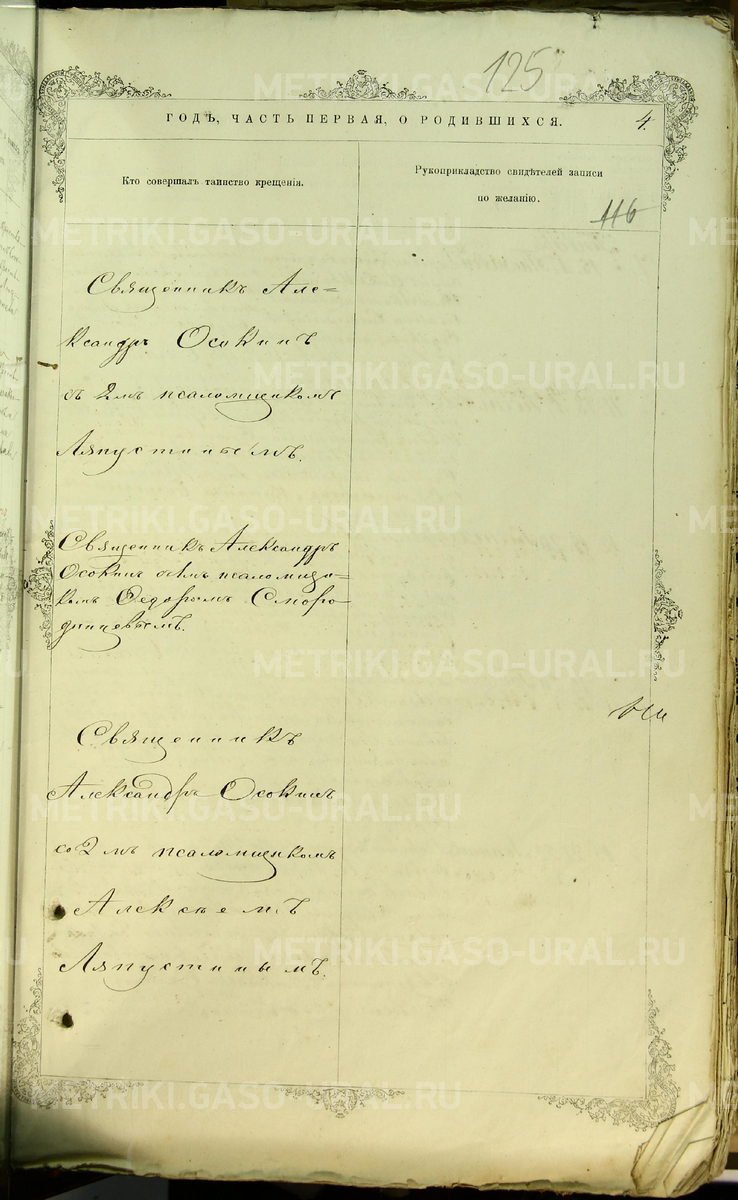 125
ГОДЪ, ЧАСТЬ ПЕРВАЯ, О РОДИВШИХСЯ.
4.
Кто совершалъ таинство крещенія.
Рукоприкладство свидѣтелей записи
по желанію.
116
Священникъ Але-
ксандръ Осокинъ
съ 2мъ псаломщикомъ
Ляпустинымъ.
Священникъ Александръ
Осокинъ съ 1мъ псаломщи-
комъ Ѳедоромъ Сморо-
динцевымъ.
Священникъ
Александръ Осокинъ
со 2мъ псаломщикомъ
Алексѣемъ
Ляпустинымъ.
METRIKI.GASO-URAL.RU